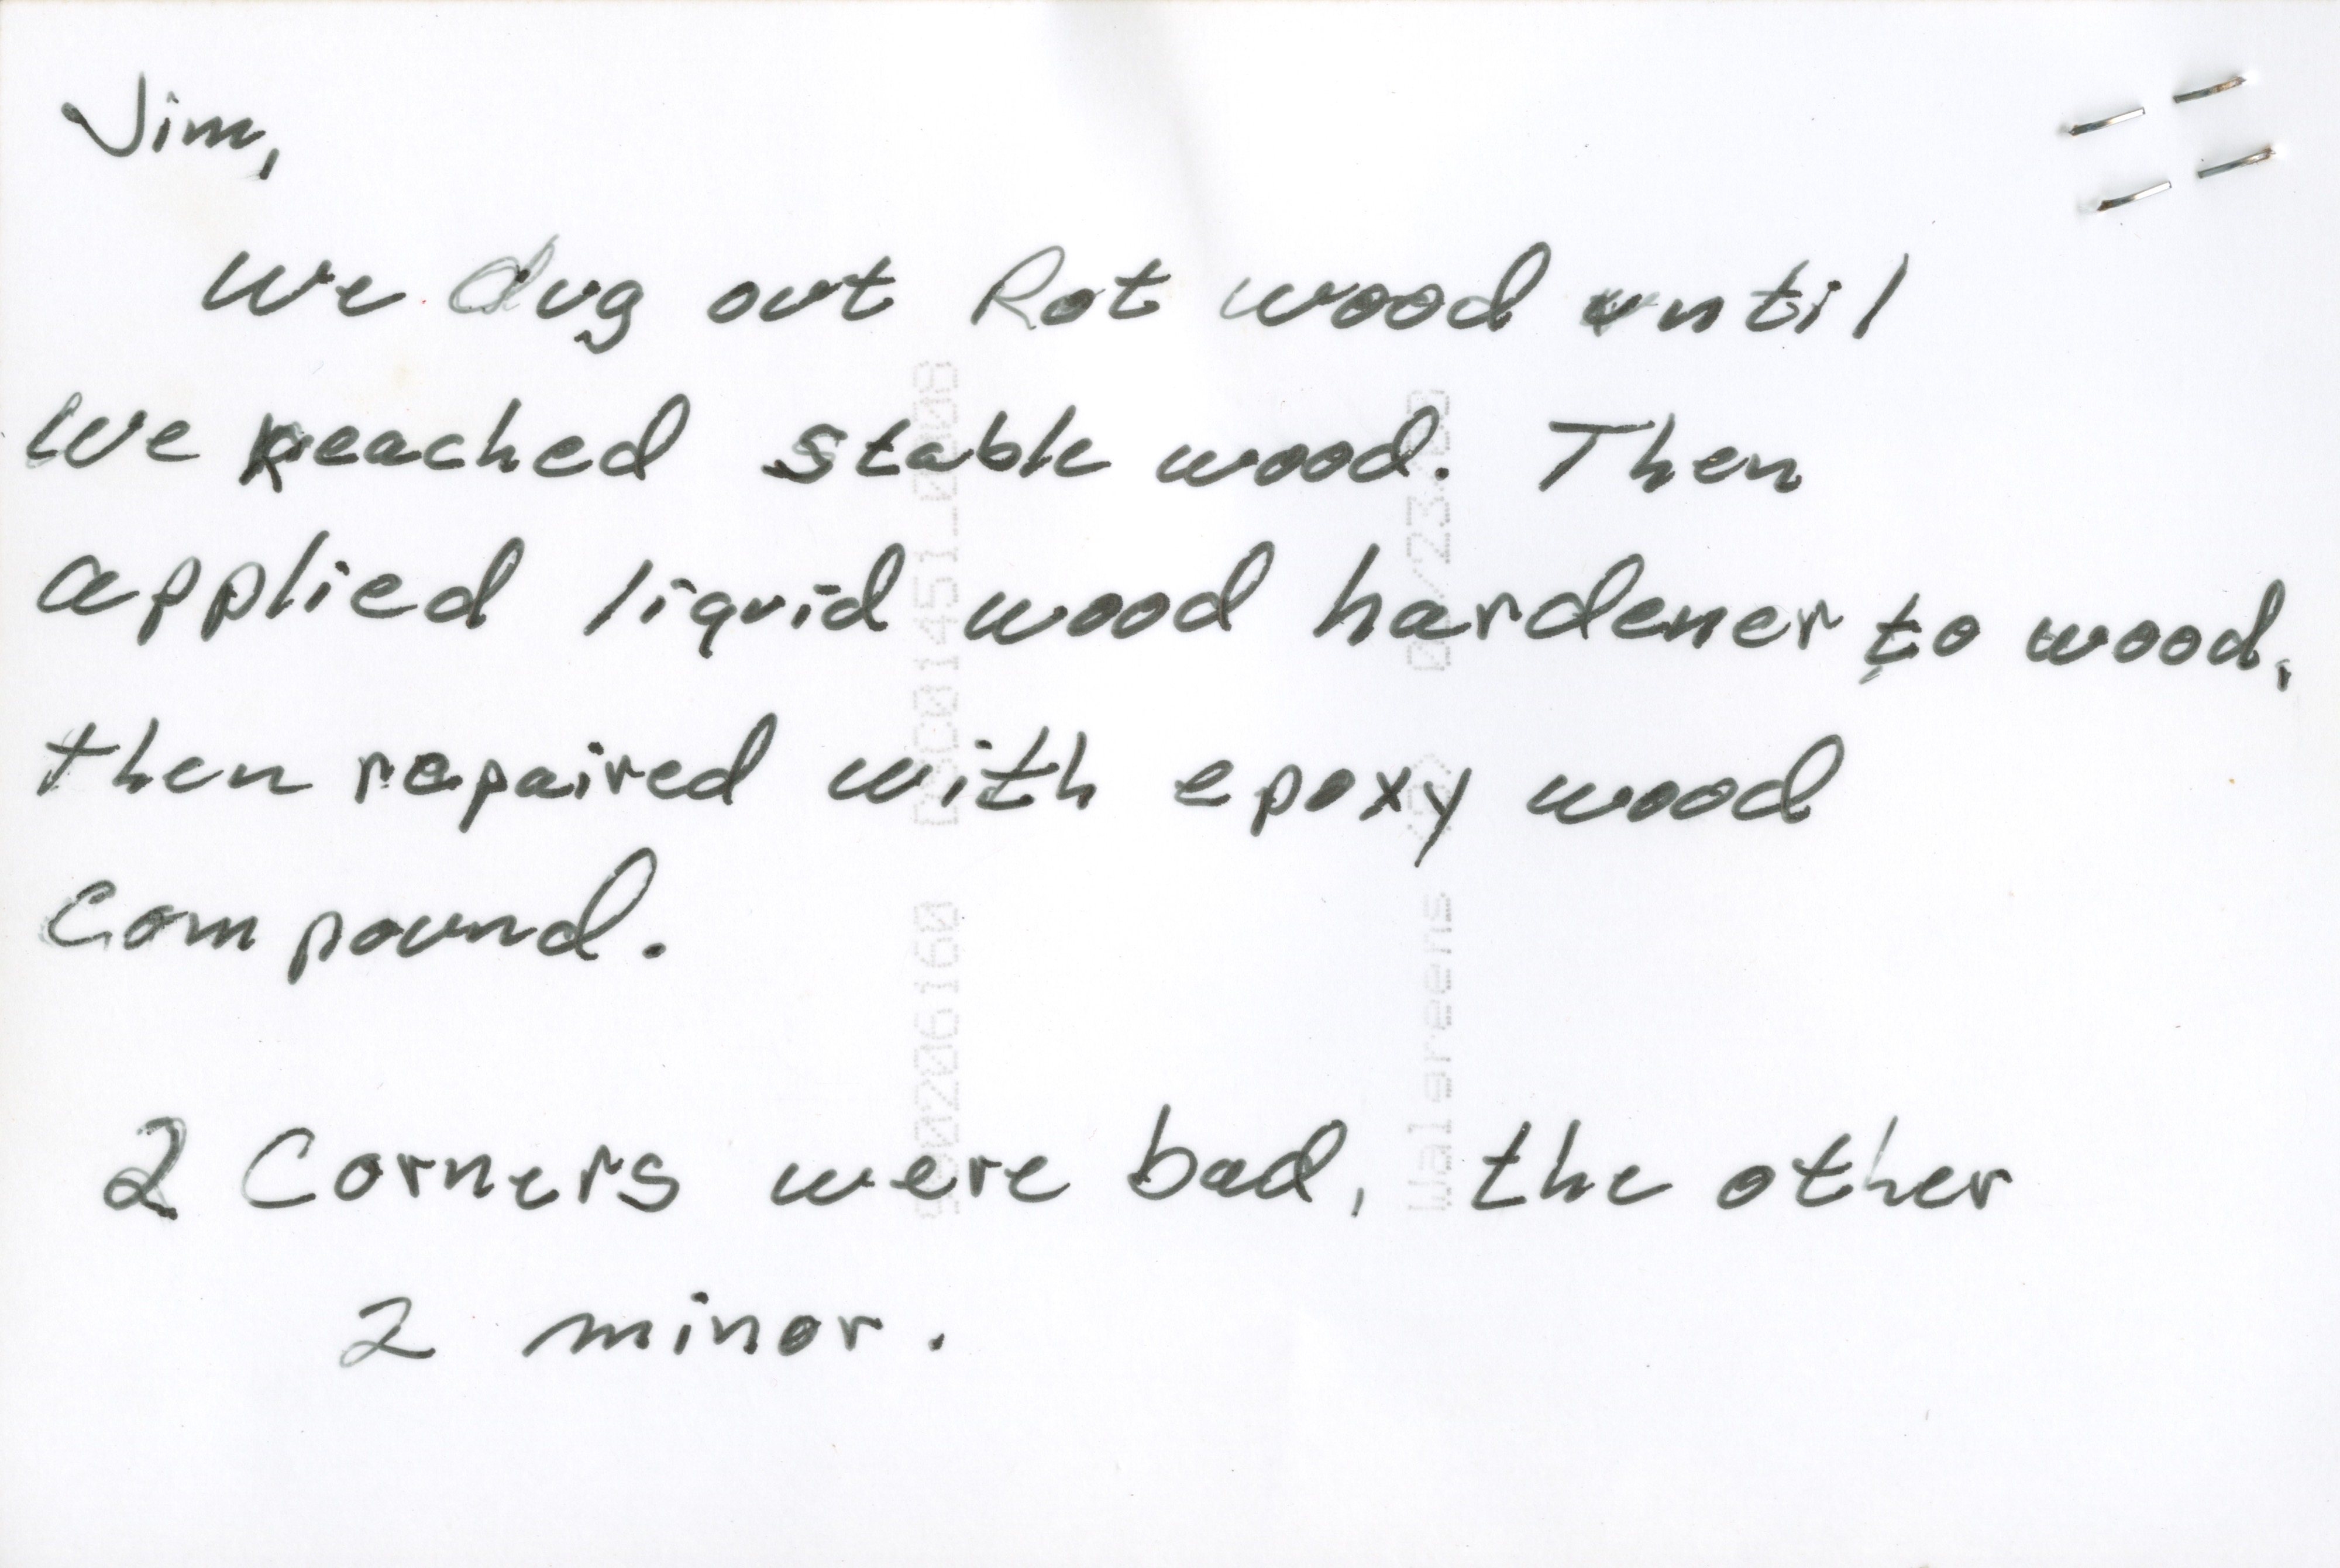 Jim,
We dug out Rot wood until
We reached stable wood. Then
applied liquid wood hardener to wood,
then repaired with epoxy wood
compound.
2 Corners were bad, the other
2 minor.
Walgreens